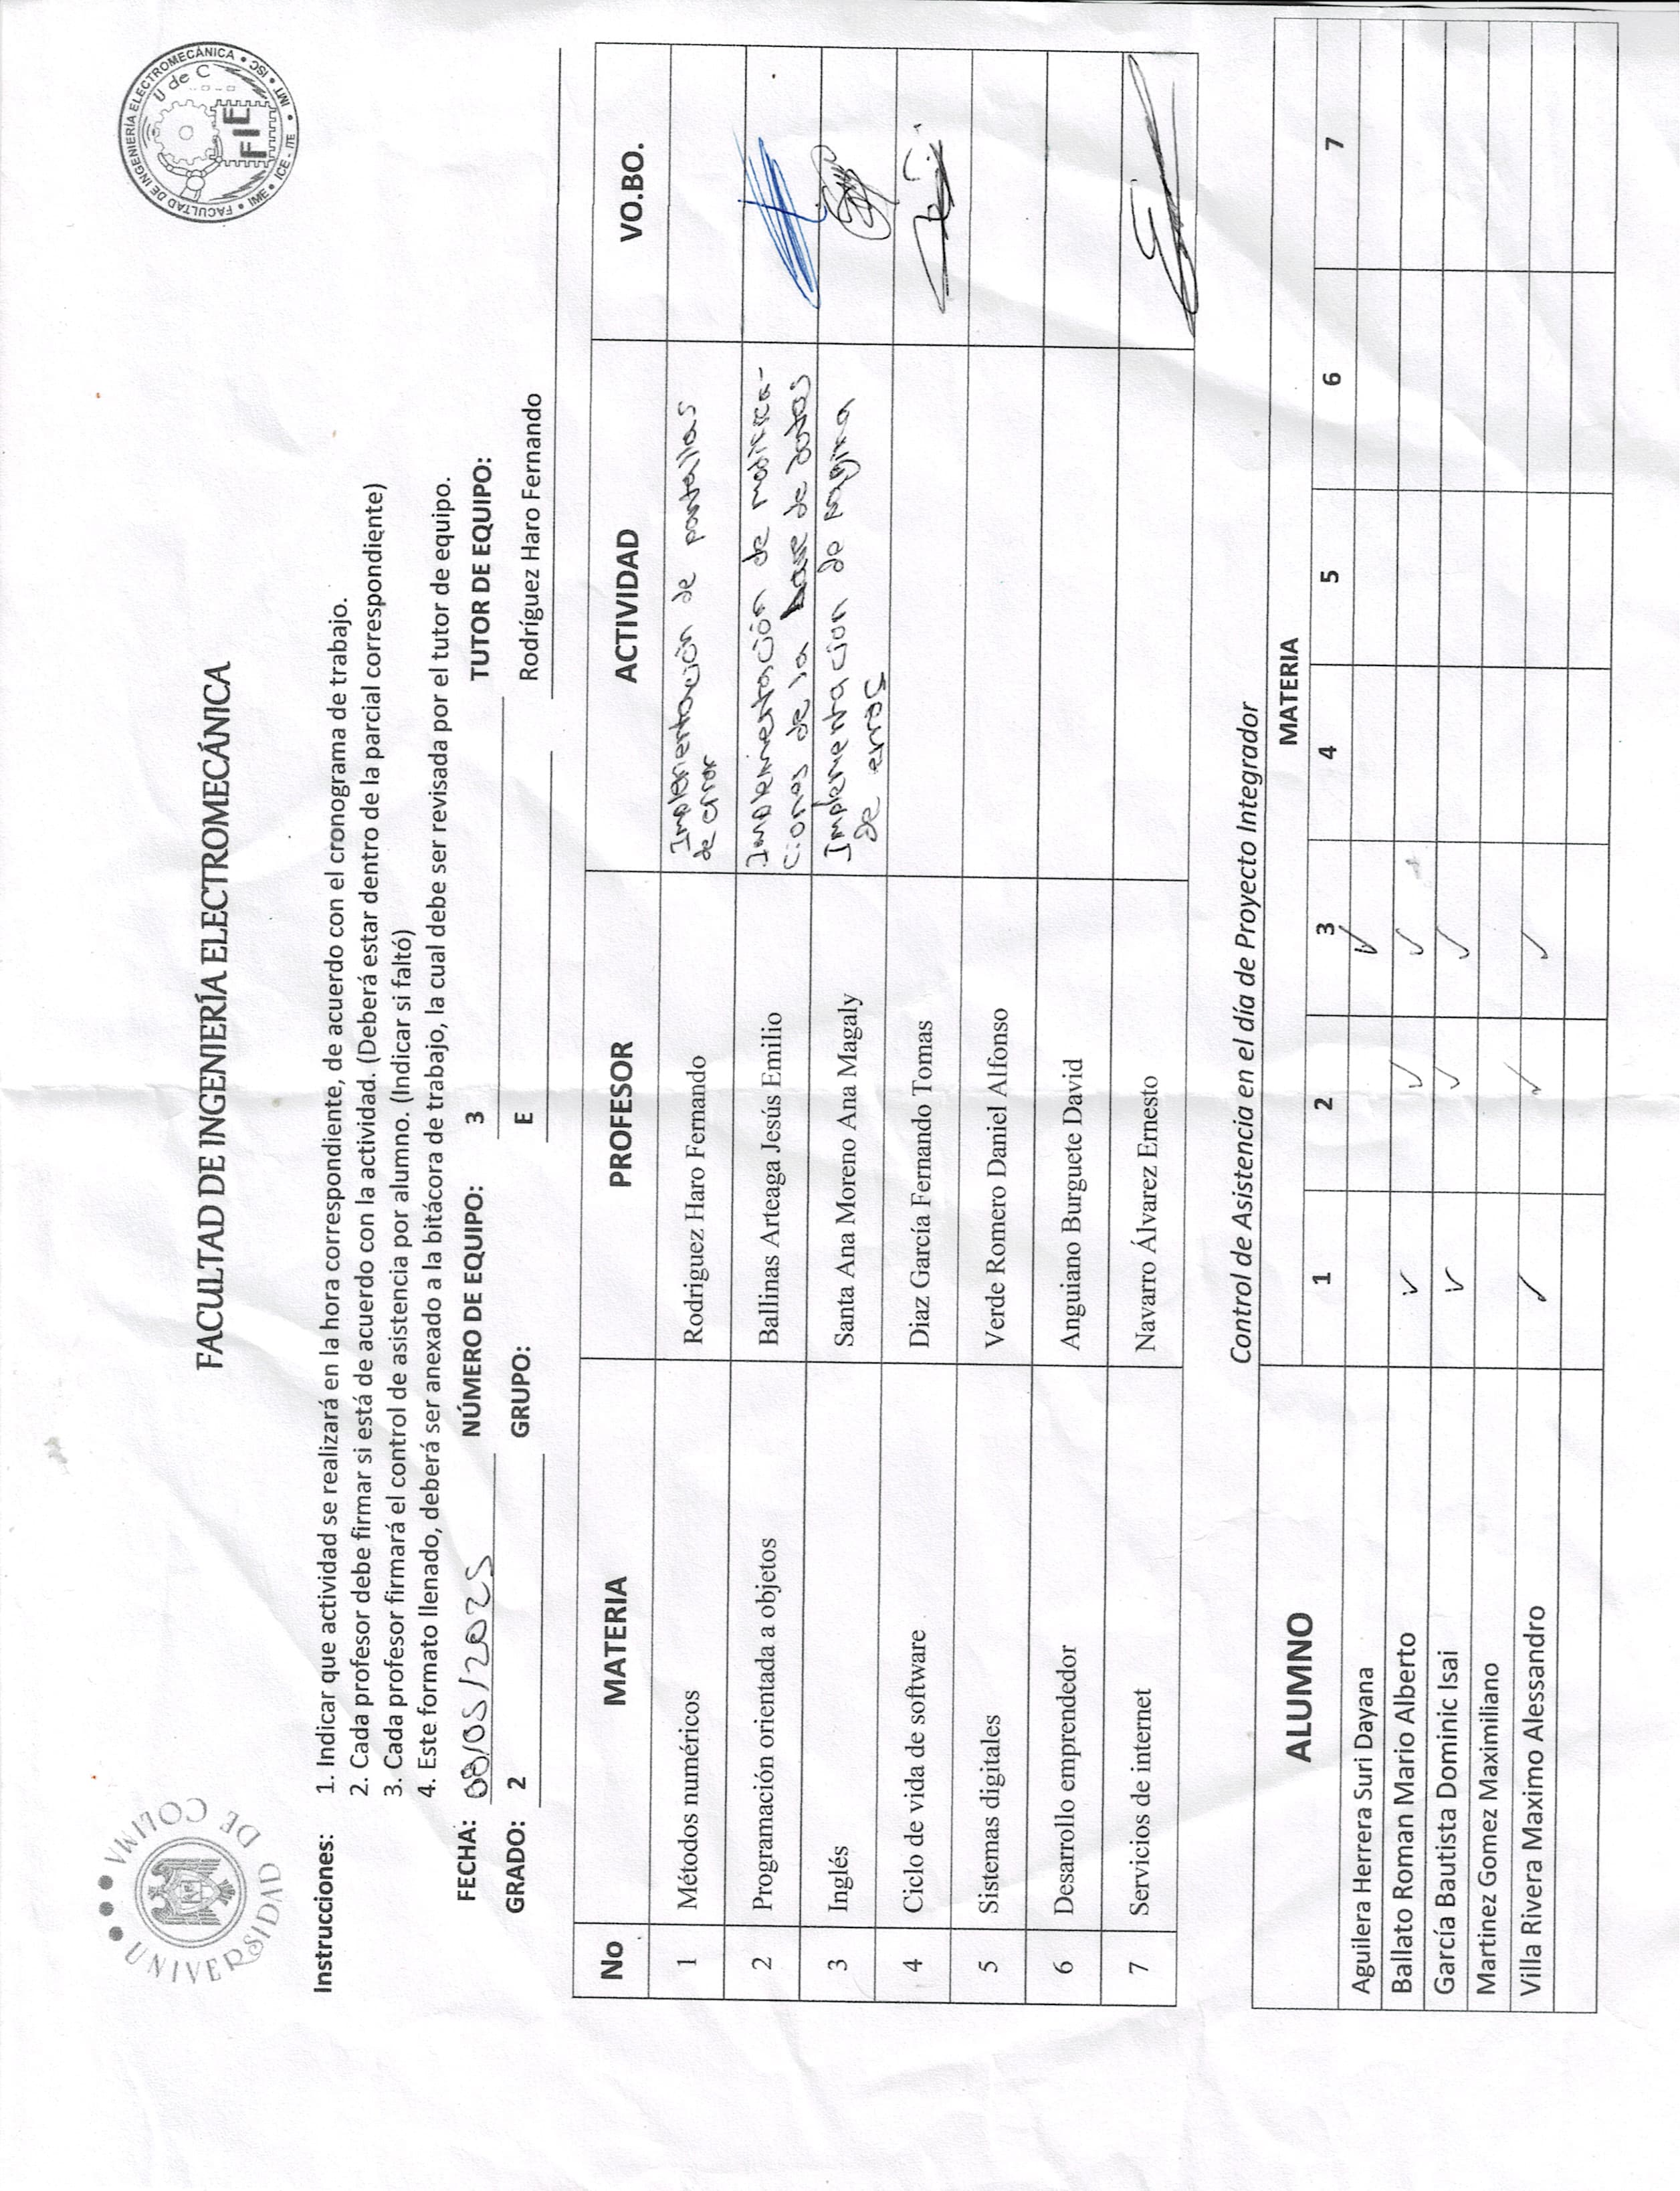 UNIVERSIDAD DE COLIMA
FACULTAD DE INGENIERÍA ELECTROMECÁNICA
FACULTAD DE INGENIERÍA ELECTROMECÁNICA • ISC • IMT • ICE - ITE • IME •
U de C
FIE
Instrucciones:
1. Indicar que actividad se realizará en la hora correspondiente, de acuerdo con el cronograma de trabajo.
2. Cada profesor debe firmar si está de acuerdo con la actividad. (Deberá estar dentro de la parcial correspondiente)
3. Cada profesor firmará el control de asistencia por alumno. (Indicar si faltó)
4. Este formato llenado, deberá ser anexado a la bitácora de trabajo, la cual debe ser revisada por el tutor de equipo.
FECHA: 08/05/2025 NÚMERO DE EQUIPO: 3 TUTOR DE EQUIPO:
GRADO: 2 GRUPO: E Rodríguez Haro Fernando
No MATERIA PROFESOR ACTIVIDAD VO.BO.
1 Métodos numéricos Rodriguez Haro Fernando Implementación de pantallas
de error
2 Programación orientada a objetos Ballinas Arteaga Jesús Emilio Implementación de modifica-
ciones de la base de datos
3 Inglés Santa Ana Moreno Ana Magaly Implementacion de pagina
de error
4 Ciclo de vida de software Diaz García Fernando Tomas
5 Sistemas digitales Verde Romero Daniel Alfonso
6 Desarrollo emprendedor Anguiano Burguete David
7 Servicios de internet Navarro Álvarez Ernesto
Control de Asistencia en el día de Proyecto Integrador
ALUMNO MATERIA
1 2 3 4 5 6 7
Aguilera Herrera Suri Dayana ✓
Ballato Roman Mario Alberto ✓ ✓ ✓
García Bautista Dominic Isai ✓ ✓ ✓
Martinez Gomez Maximiliano
Villa Rivera Maximo Alessandro ✓ ✓ ✓